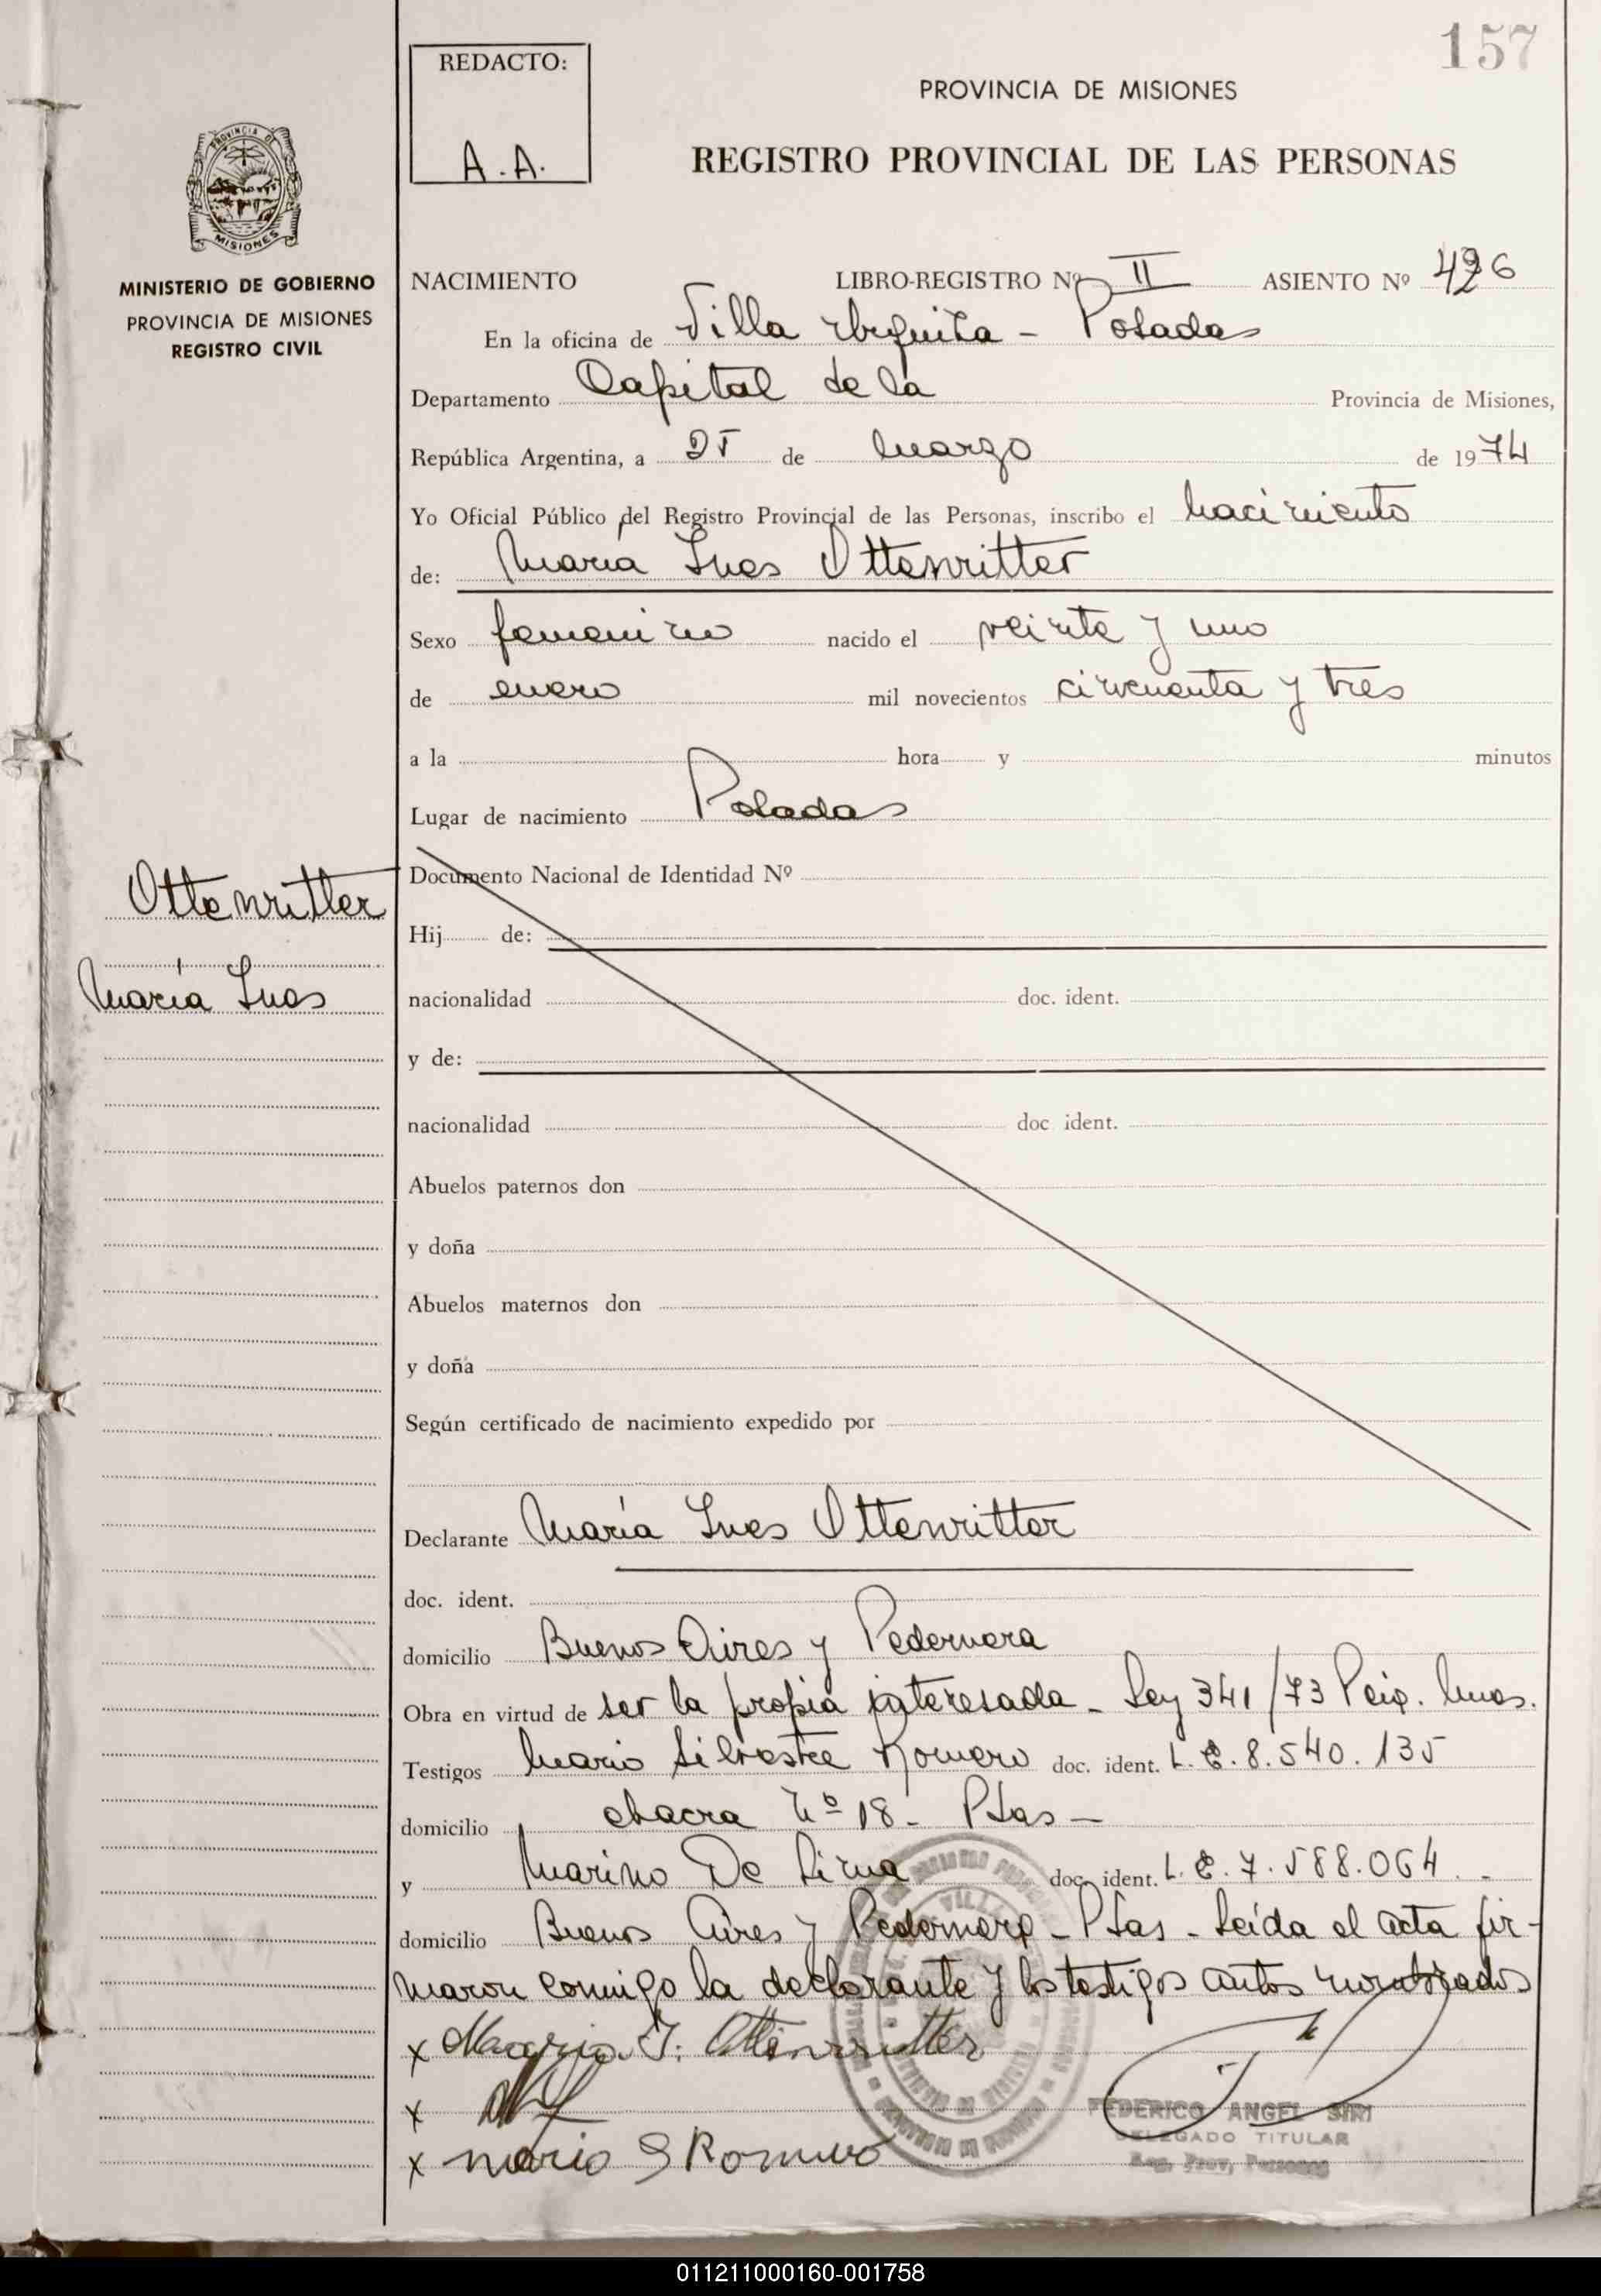 157
REDACTO:
A.A.
PROVINCIA DE MISIONES
REGISTRO PROVINCIAL DE LAS PERSONAS
PROVINCIA DE
MISIONES
MINISTERIO DE GOBIERNO
PROVINCIA DE MISIONES
REGISTRO CIVIL
NACIMIENTO LIBRO-REGISTRO Nº II ASIENTO Nº 426
En la oficina de Villa Urquiza - Posadas
Departamento Capital de la Provincia de Misiones,
República Argentina, a de marzo de 1974
Yo Oficial Público del Registro Provincial de las Personas, inscribo el nacimiento
de: María Ines Ottenwritter
Sexo femenino nacido el veinte y uno
de enero mil novecientos cincuenta y tres
a la hora y minutos
Lugar de nacimiento Posadas
Documento Nacional de Identidad Nº
Ottenwritter
Hij de:
María Ines
nacionalidad doc. ident.
y de:
nacionalidad doc ident.
Abuelos paternos don
y doña
Abuelos maternos don
y doña
Según certificado de nacimiento expedido por
Declarante María Ines Ottenwritter
doc. ident.
domicilio Buenos Aires y Pedernera
Obra en virtud de ser la propia interesada - Ley 341/73
Testigos Mario Silvestre Romero doc. ident. L.E. 8.540.135
domicilio chacra Nº 18 - Pdas -
y Marino De Lima doc. ident. L.E. 7.588.064 -
domicilio Buenos Aires y Pedernera - Pdas - Leída el acta fir-
maron conmigo la declarante y los testigos antes nombrados
x Maria I. Ottenwritter
x
x mario S Romero
FEDERICO ANGEL SIRI
DELEGADO TITULAR
Reg. Prov. Personas
011211000160-001758